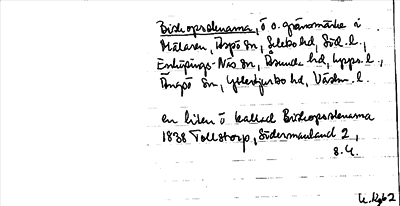 Biskopsdenarna, ö o. gränsmärke i
Mälaren, Aspö sn, Selebo hd, Söd. l.,
Enköpings-Näs sn, Åsunda hd, Upps. l.,
Ängsö sn, Yttertjurbo hd, Västm. l.
en liten ö kallad Biskopsdenarna
1838 Tollstorp, Södermanland 2,
s. 4.